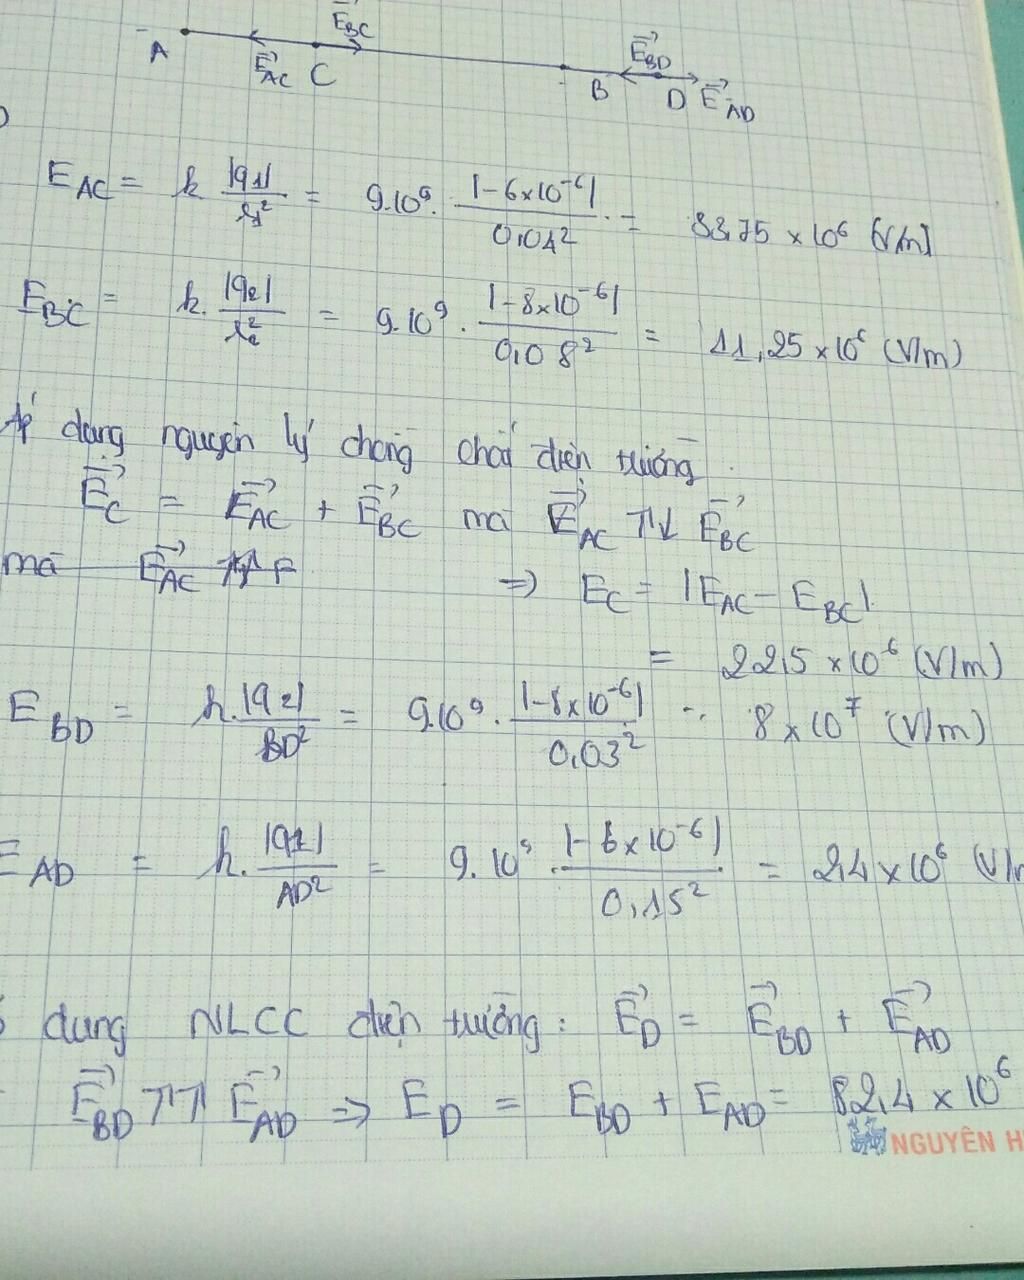 E⃗BC
A E⃗AC C B E⃗BD D E⃗AD
EAC = k |q1|/r1² = 9.10⁹. |-6×10⁻⁶|/0,04² = 33,75 ×10⁶ (V/m)
EBC = k. |q2|/r2² = 9.10⁹. |-8×10⁻⁶|/0,08² = 11,25 ×10⁶ (V/m)
Áp dụng nguyên lý chồng chất điện trường
E⃗C = E⃗AC + E⃗BC mà E⃗AC ↑↓ E⃗BC
mà E⃗AC ↑↑ E
=> EC = |EAC - EBC|
= 22,5 ×10⁻⁶ (V/m)
EBD = k.|q2|/BD² = 9.10⁹. |-8×10⁻⁶|/0,03² = 8×10⁷ (V/m)
EAD = k. |q1|/AD² = 9.10⁹. |-6×10⁻⁶|/0,15² = 2,4×10⁶ (V/m
dụng NLCC điện trường: E⃗D = E⃗BD + E⃗AD
E⃗BD ↑↑ E⃗AD => ED = EBD + EAD = 82,4 ×10⁶
NGUYÊN H